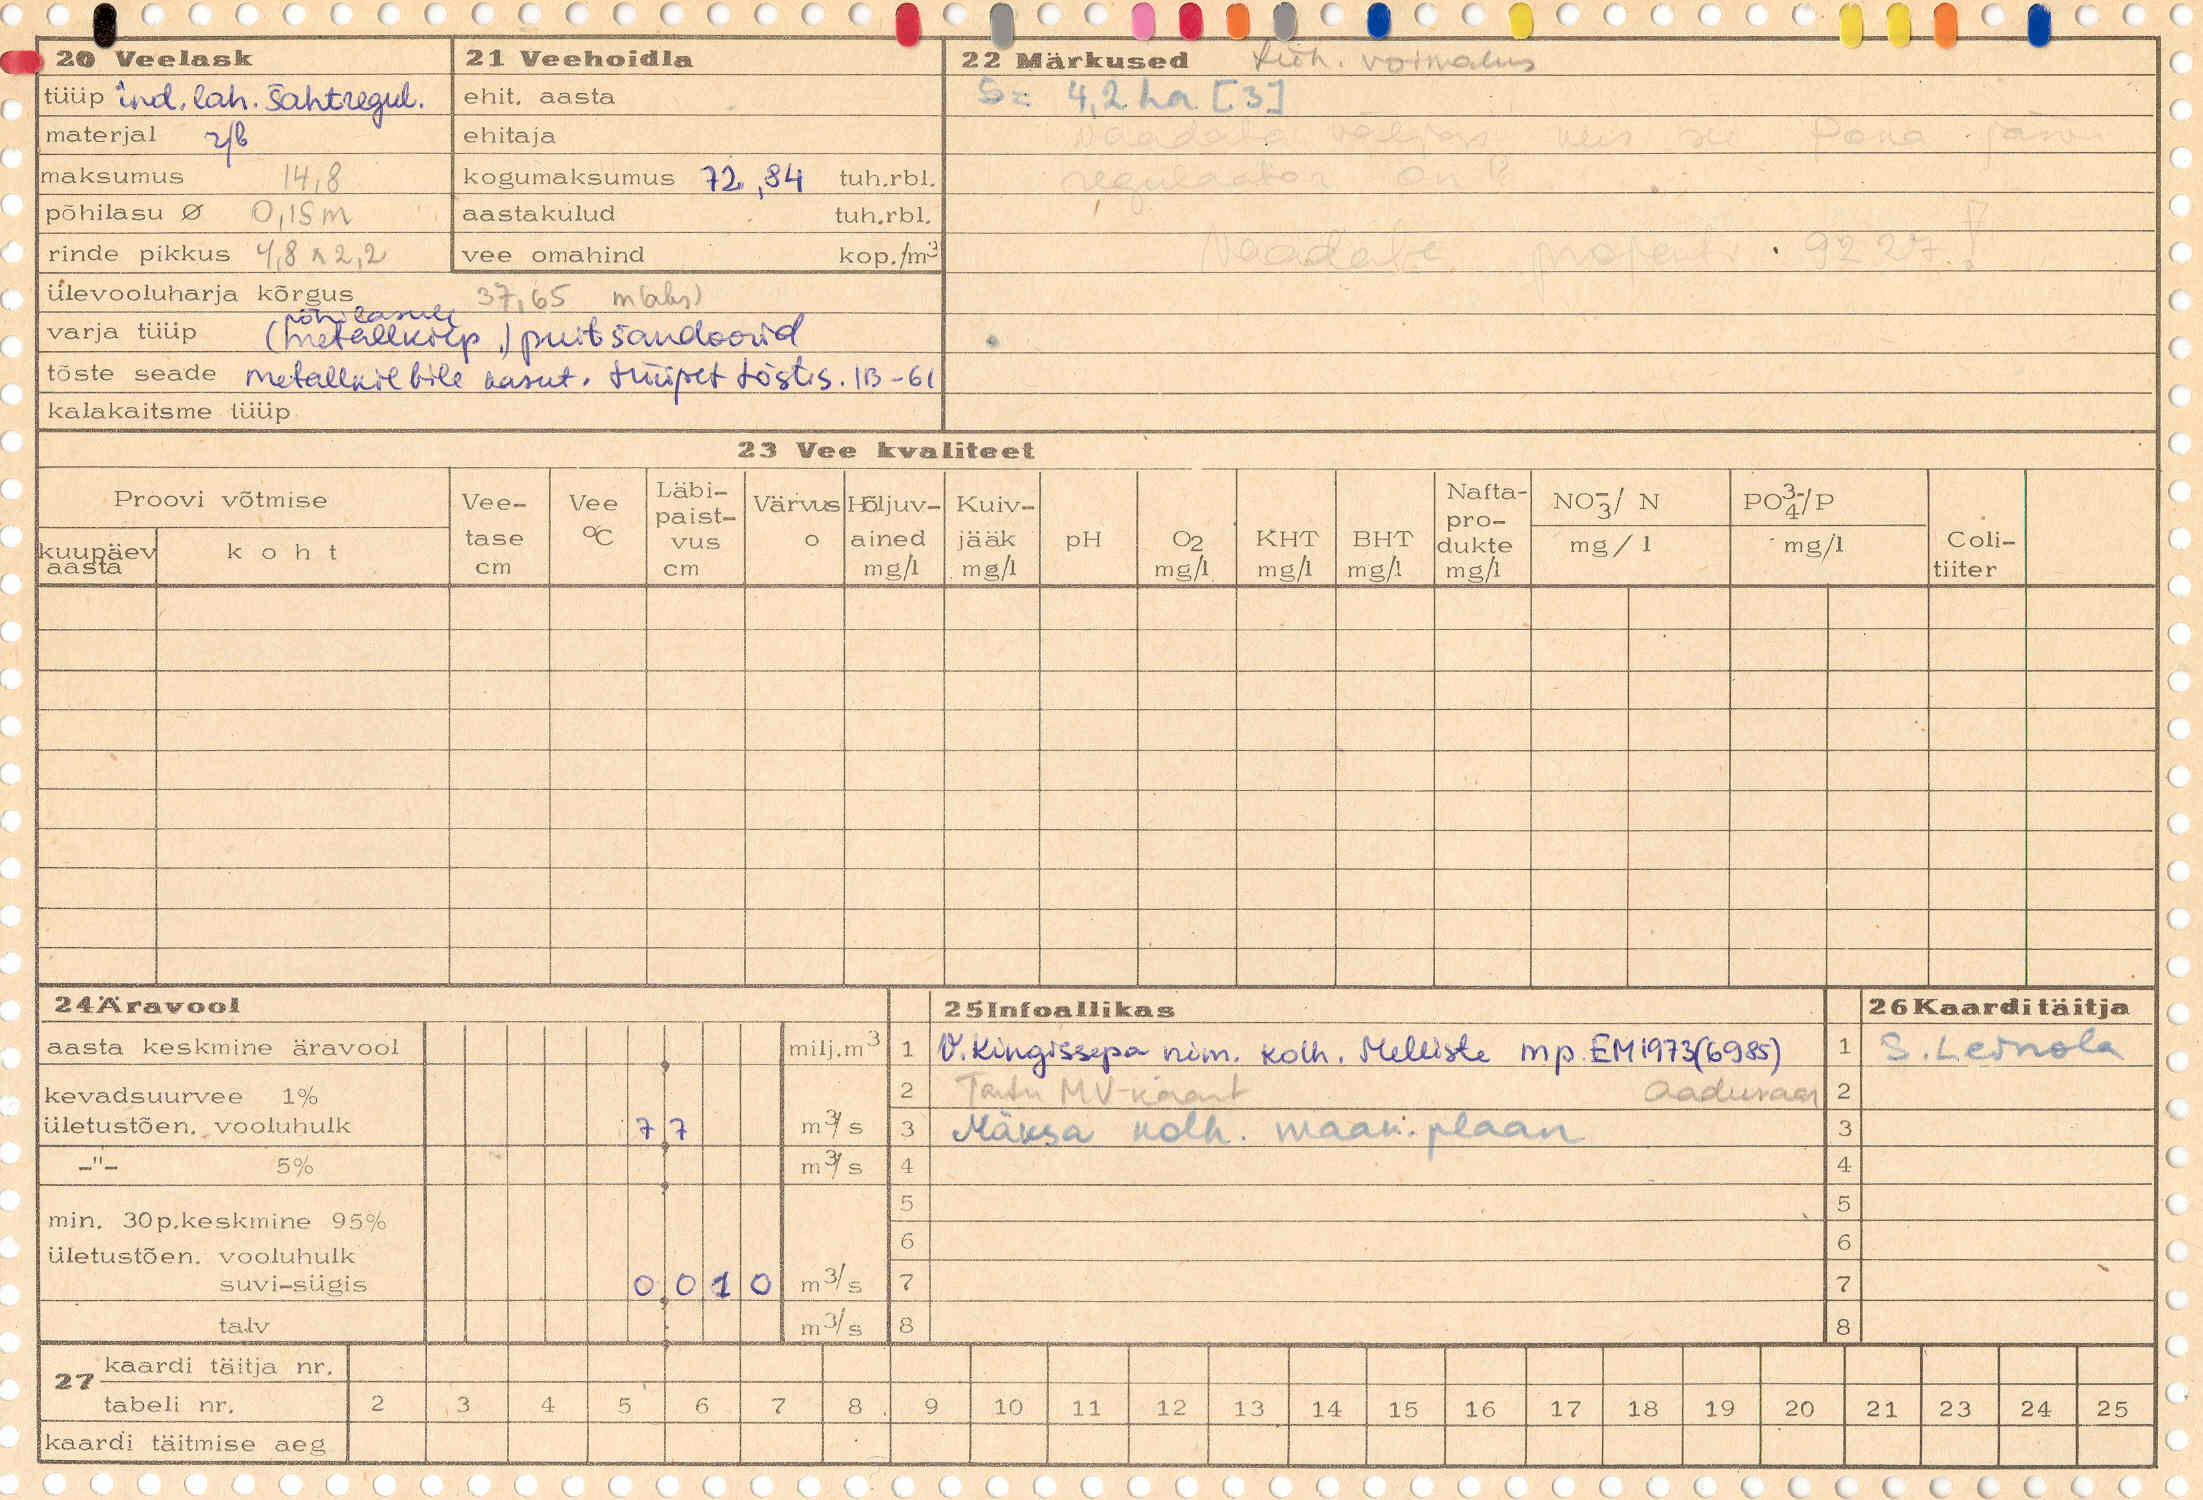 20 Veelask
tüüp ind. lah. šahtregul.
materjal r/b
maksumus 14,8
põhilasu Ø 0,15 m
rinde pikkus 4,8 x 2,2
ülevooluharja kõrgus 37,65 m(abs)
põhilasule
varja tüüp (metallkilp,) puitšandoorid
tõste seade metallkilbile kasut. tüüpet tõstis. IB-61
kalakaitsme tüüp
21 Veehoidla
ehit. aasta
ehitaja
kogumaksumus 72,84 tuh.rbl.
aastakulud tuh.rbl.
vee omahind kop./m³
22 Märkused tüh. võimalus
S = 4,2 ha [3]
Vaadata väljas kus see Pana järve
regulaator on?
Vaadata projekti 9227!
23 Vee kvaliteet
Proovi võtmise
kuupäev aasta
koht
Vee-tase cm
Vee °C
Läbi-paist-vus cm
Värvus o
Hõljuv-ained mg/l
Kuiv-jääk mg/l
pH
O2 mg/l
KHT mg/l
BHT mg/l
Nafta-pro-dukte mg/l
NO₃⁻/ N mg/l
PO₄³⁻/P mg/l
Coli-tiiter
24 Äravool
aasta keskmine äravool milj.m³
kevadsuurvee 1%
ületustõen. vooluhulk 7 7 m³/s
-"- 5% m³/s
min. 30p.keskmine 95%
ületustõen. vooluhulk
suvi-sügis 0 0 1 0 m³/s
talv m³/s
25 Infoallikas
1 V. Kingissepa nim. kolh. Melliste mp. EM 1973 (6985)
2 Tartu MV-kaart
3 Mäksa kolh. maak. plaan
4
5
6
7
8
26 Kaardi täitja
1 S. Leinola
2
3
4
5
6
7
8
27 kaardi täitja nr.
tabeli nr. 2 3 4 5 6 7 8 9 10 11 12 13 14 15 16 17 18 19 20 21 23 24 25
kaardi täitmise aeg